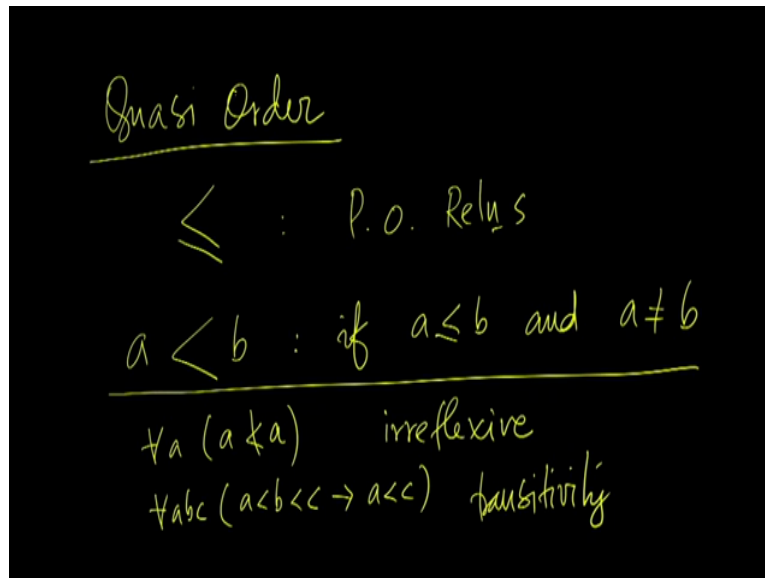 Quasi Order
≤ : P.O. Relns
a < b : if a ≤ b and a ≠ b
∀a (a ≮ a) irreflexive
∀abc (a<b<c → a<c) transitivity